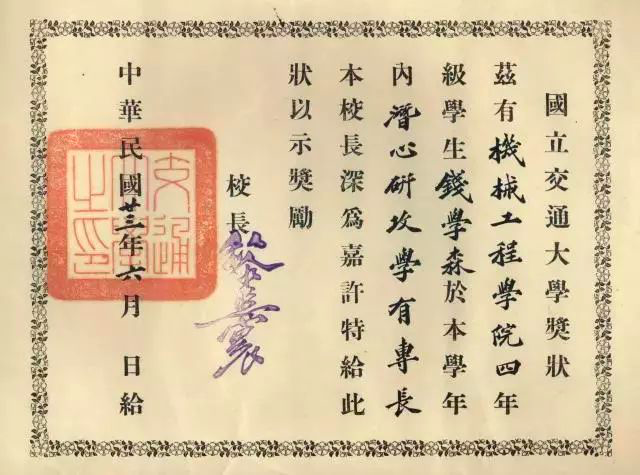 國立交通大學獎狀
茲有機械工程學院四年
級學生錢學森於本學年
內潛心研攻學有專長
本校長深爲嘉許特給此
狀以示獎勵
校長黎照寰
中華民國廿三年六月 日給
交通大學之印